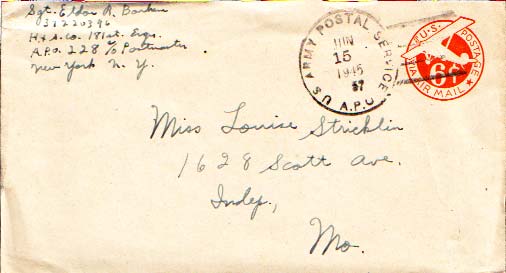 Sgt. Eldon R. Barker
37220396
H.&S. Co. 181st. Engrs.
A.P.O. 228 c/o Postmaster
New York N. Y.
U.S. ARMY POSTAL SERVICE
JUN
15
1945
57
A.P.O.
U.S. POSTAGE
6¢
VIA AIR MAIL
Miss Louise Stricklin
1628 Scott Ave.
Indep,
Mo.